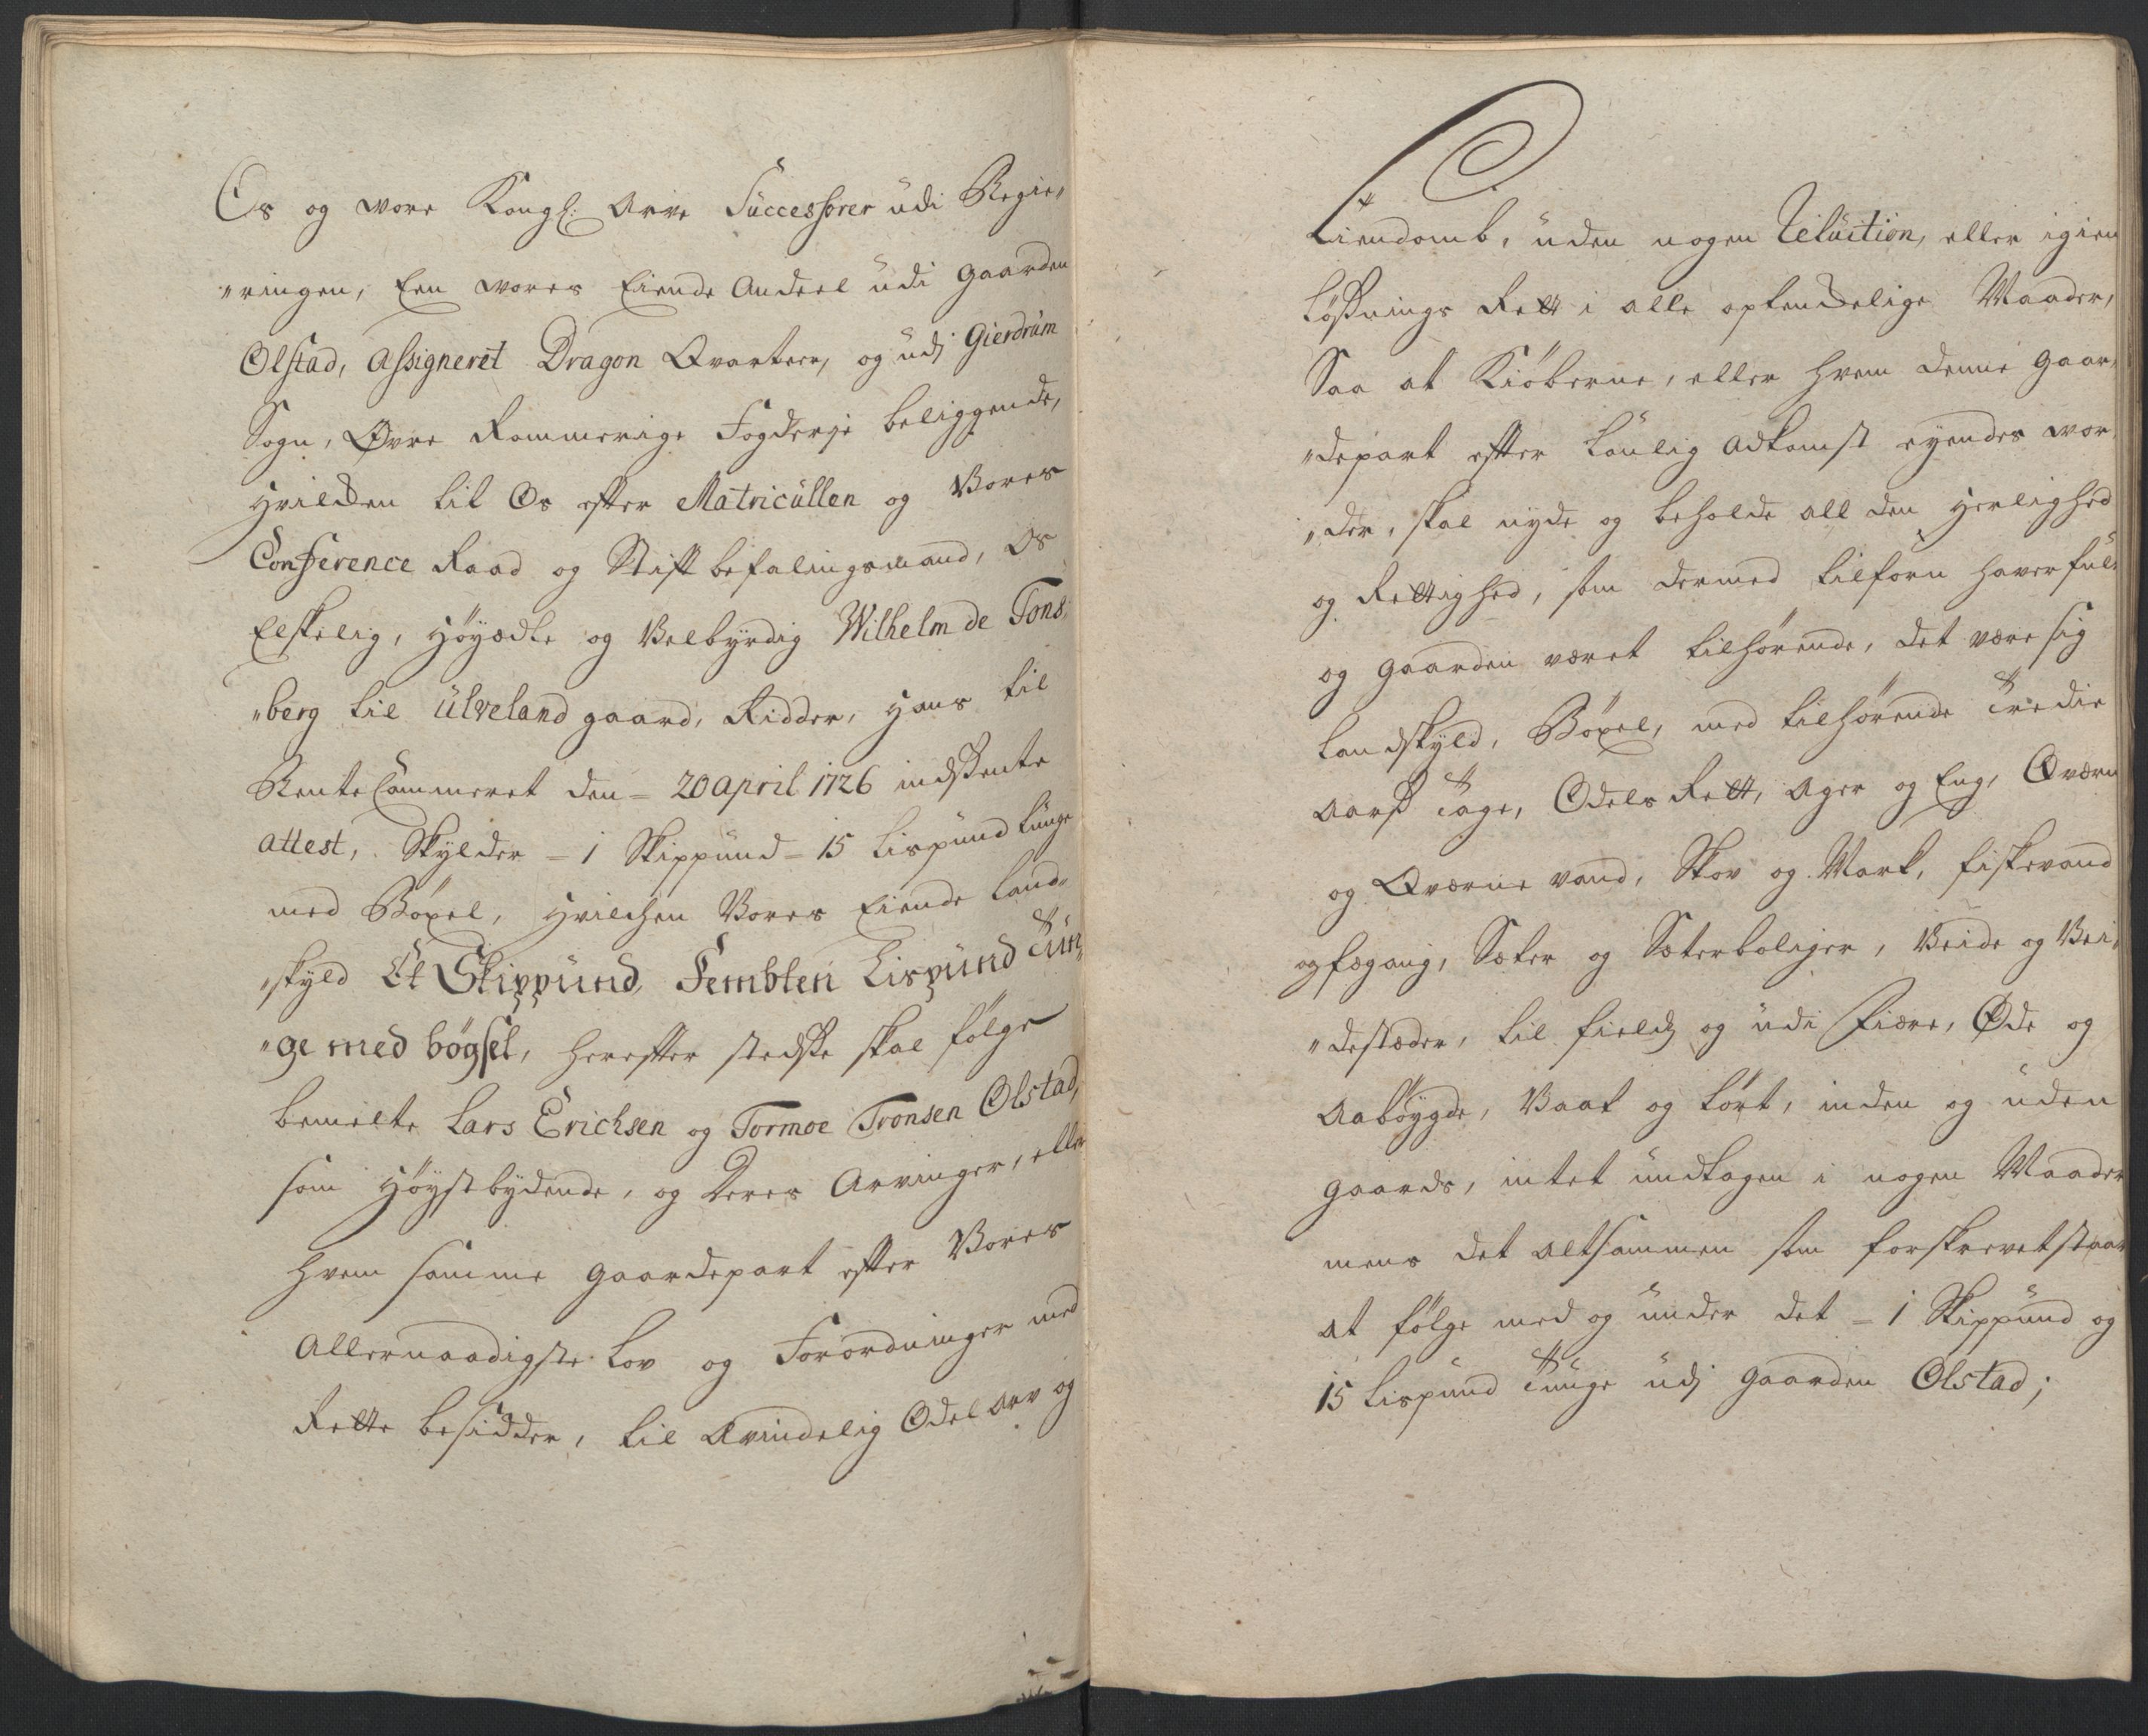 Os og vore Kongl: Arve Successorer udi Regie„
„ringen, Een vores Eiende Andeel udi Gaarden
Olstad, Assigneret Dragon Qvarteer, og udj Gierdrum
Sogn, Øvre Rommerige Fogderje beliggende,
Hvilcken til Os efter Matriculen og Vores
Conference Raad og Stiftbefalingsmand, Os
Elskelig, Høyædle og Velbyrdig Wilhelm de Tons„
„berg til Ulveland gaard, Ridder, Hans til
RenteCammeret den = 20 April 1726 indsendte
attest, Skylder = 1 Skippund = 15 Lispund tunge
med Böxel, Hvilchen Vores Eiende Land„
„skyld Et Skippund, Fembten Lispund Tun„
„ge med bögsel, herefter stedse skal følge
bemelte Lars Erichsen og Tormoe Tronsen Olstad,
som Høystbydende, og deres Arvinger, eller
hvem samme gaardepart efter Vores
Allernaadigste Lov og Forordninger med
Rette besidder, til Ævindelig Odel Arv og
Eiendomb, uden nogen Reluition, eller igien
Løsnings Rett i alle optenckelige Maader,
Saa at Kiøberne, eller hvem denne gaar„
„depart efter Loulig Adkomst eyendes vor„
„der, skal nyde og beholde all den Herlighed
og Rettighed, som dermed tilforn haver fult
og gaarden været tilhørende, det være sig
Landskyld, Böxel, med tilhørende Tredie
Aars Tage, Odels Rett, Ager og Eng, Qværn
og Qværne vand, Skov og Mark, fiskevand
og fægang, Sæter og Sæterboliger, Veide og Vei„
„destæder, til Fields og udi Fiære, Øde og
Aabøygde, Vaat og tørt, inden og uden
gaards, intet undtagen i nogen Maader
mens det altsammen som forskrevet staar
at følge med og under det = 1 Skippund og
15 Lispund Tunge udj gaarden Olstad;